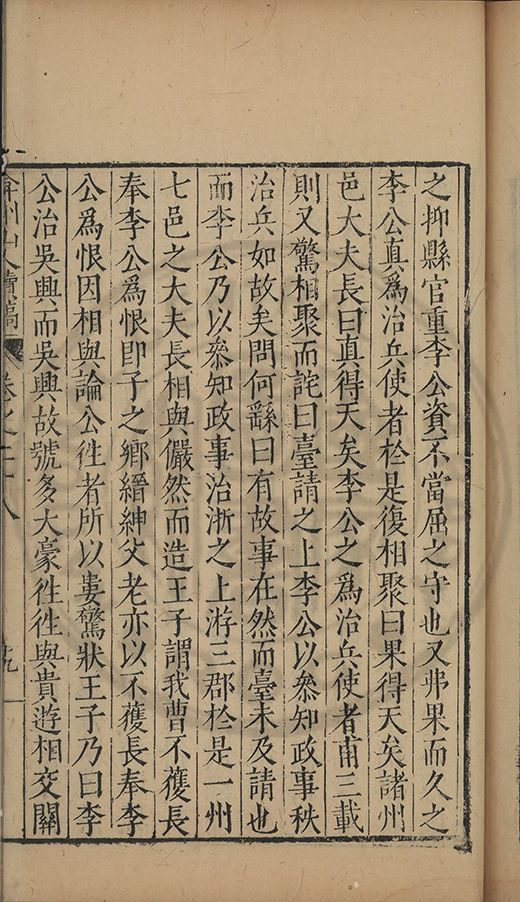 之抑縣官重李公資不當屈之守也又弗果而久之
李公真爲治兵使者於是復相聚曰果得天矣諸州
邑大夫長曰直得天矣李公之爲治兵使者甫三載
則又驚相聚而詫曰臺請之上李公以叅知政事秩
治兵如故矣問何繇曰有故事在然而臺未及請也
而李公乃以叅知政事治浙之上游三郡於是一州
七邑之大夫長相與儼然而造王子謂我曹不獲長
奉李公爲恨即子之鄉縉紳父老亦以不獲長奉李
公爲恨因相與論公徃者所以婁驚狀王子乃曰李
公治吳興而吳興故號多大豪徃徃與貴遊相交關
弇州山人續稿 卷之二十八